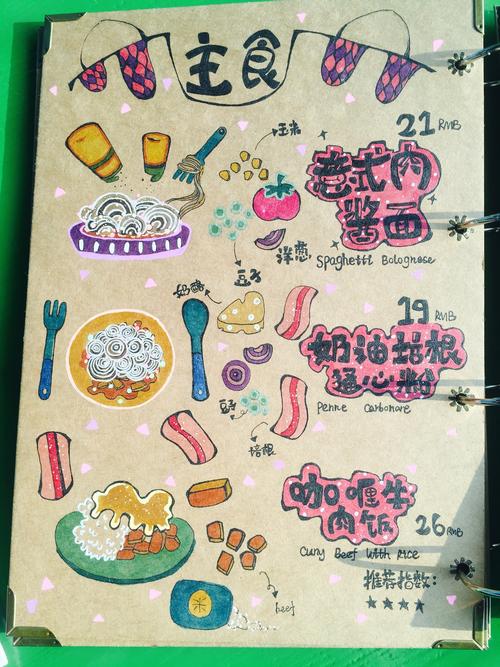 主食
21 RMB
玉米
意式肉
酱面
洋葱
Spaghetti Bolognese
豆子
奶酪
19 RMB
奶油培根
通心粉
Penne Carbonare
豆子
培根
咖喱牛
肉饭
26 RMB
Curry Beef With Rice
推荐指数:
★★★★
米
beef